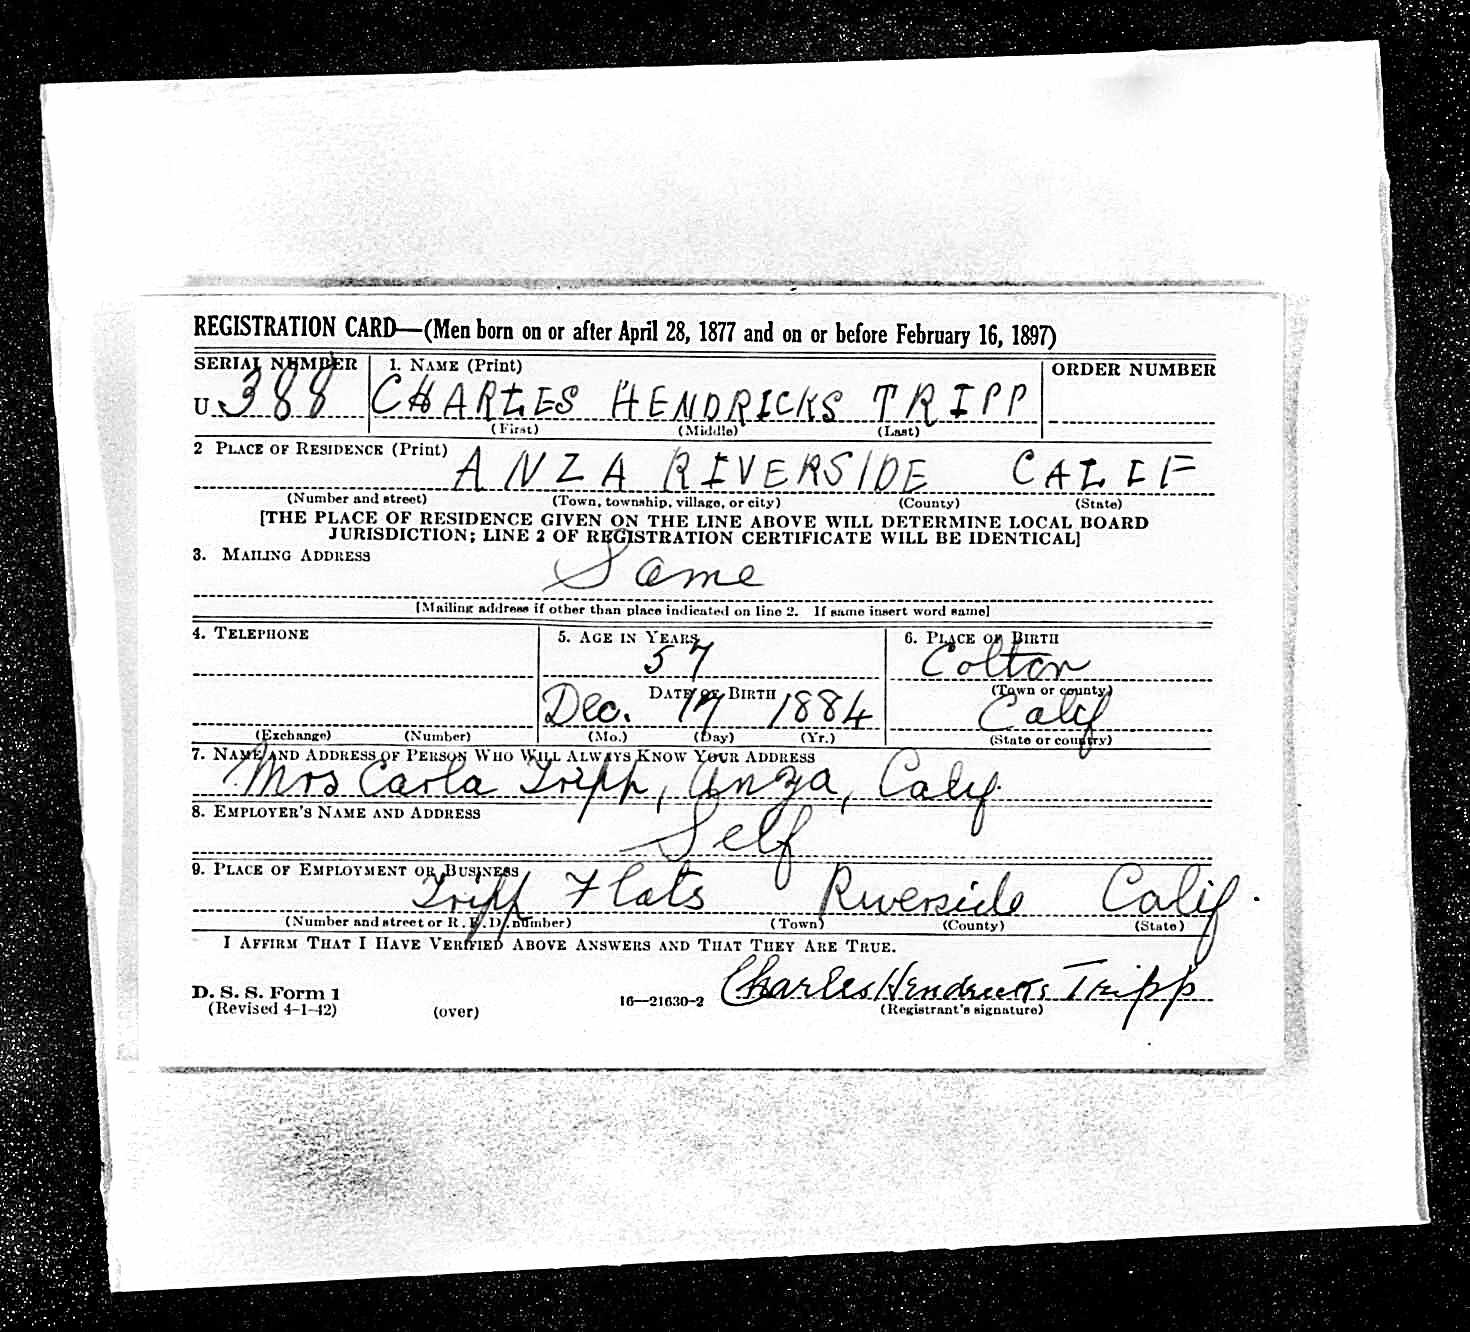 REGISTRATION CARD—(Men born on or after April 28, 1877 and on or before February 16, 1897)
SERIAL NUMBER 1. NAME (Print) ORDER NUMBER
U 388 CHARLES HENDRICKS TRIPP
(First) (Middle) (Last)
2 PLACE OF RESIDENCE (Print)
ANZA RIVERSIDE CALIF
(Number and street) (Town, township, village, or city) (County) (State)
[THE PLACE OF RESIDENCE GIVEN ON THE LINE ABOVE WILL DETERMINE LOCAL BOARD
JURISDICTION; LINE 2 OF REGISTRATION CERTIFICATE WILL BE IDENTICAL]
3. MAILING ADDRESS
Same
[Mailing address if other than place indicated on line 2. If same insert word same]
4. TELEPHONE 5. AGE IN YEARS 6. PLACE OF BIRTH
57 Colton
DATE OF BIRTH (Town or county)
Dec. 17 1884 Calif
(Exchange) (Number) (Mo.) (Day) (Yr.) (State or country)
7. NAME AND ADDRESS OF PERSON WHO WILL ALWAYS KNOW YOUR ADDRESS
Mrs Carla Tripp, Anza, Calif.
8. EMPLOYER'S NAME AND ADDRESS
Self
9. PLACE OF EMPLOYMENT OR BUSINESS
Tripp Flats Riverside Calif.
(Number and street or R. F. D. number) (Town) (County) (State)
I AFFIRM THAT I HAVE VERIFIED ABOVE ANSWERS AND THAT THEY ARE TRUE.
Charles Hendricks Tripp
D. S. S. Form 1
(Revised 4-1-42) (over) 16—21630-2 (Registrant's signature)